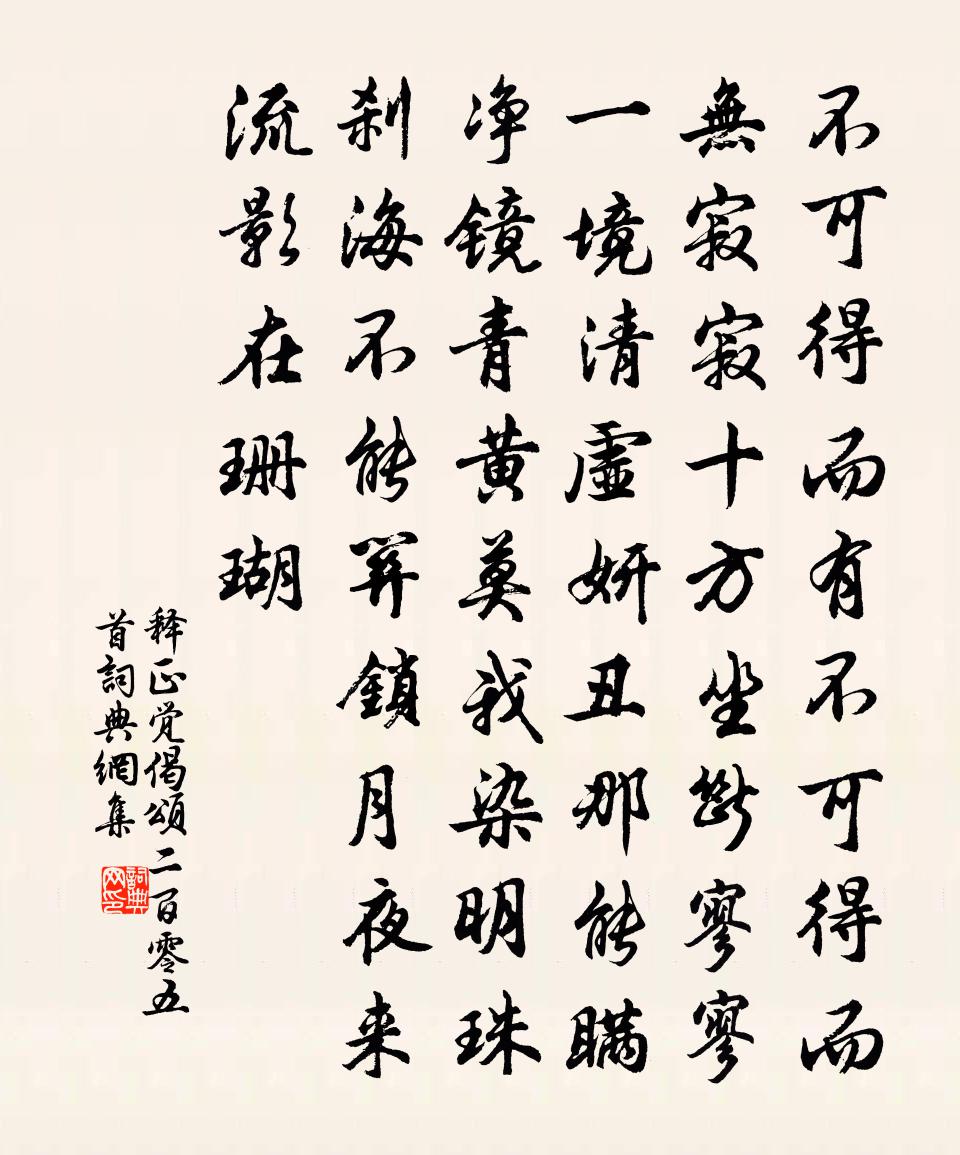 不可得而有不可得而
無寂寂十方坐斷寥寥
一境清虛妍丑那能瞞
净镜青黄莫我染明珠
刹海不能關鎖月夜来
流影在珊瑚
释正觉偈頌二百零五
首詞典網集
詞典网印